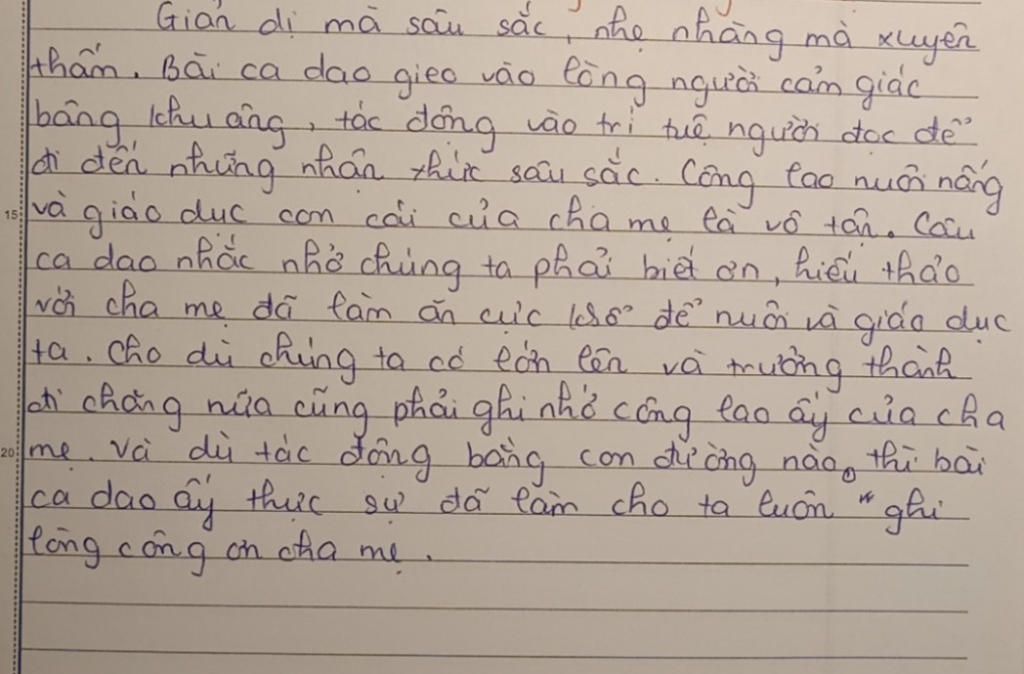 Giản dị mà sâu sắc, nhẹ nhàng mà xuyên
thấm. Bài ca dao gieo vào lòng người cảm giác
bâng khuâng, tác động vào trí tuệ người đọc để
đi đến những nhận thức sâu sắc. Công lao nuôi nấng
15 và giáo dục con cái của cha mẹ là vô tận. Câu
ca dao nhắc nhở chúng ta phải biết ơn, hiếu thảo
với cha mẹ đã làm ăn cực khổ để nuôi và giáo dục
ta. Cho dù chúng ta có lớn lên và trưởng thành
đi chăng nữa cũng phải ghi nhớ công lao ấy của cha
20 mẹ. Và dù tác động bằng con đường nào, thì bài
ca dao ấy thực sự đã làm cho ta luôn "ghi
lòng công ơn cha mẹ.